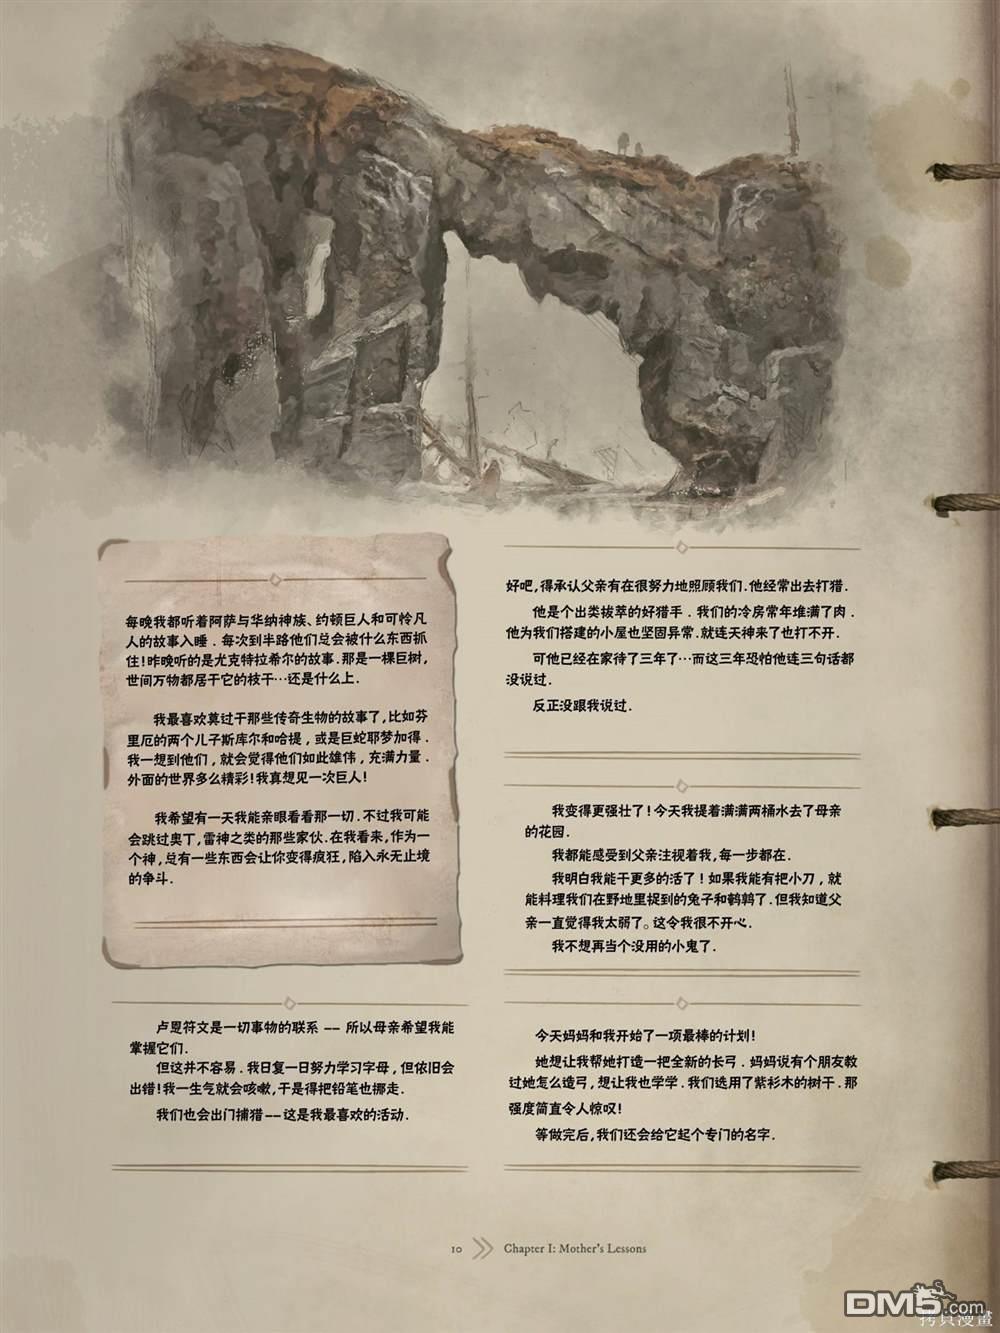 每晚我都听着阿萨与华纳神族、约顿巨人和可怜凡
人的故事入睡．每次到半路他们总会被什么东西抓
住!昨晚听的是尤克特拉希尔的故事.那是一棵巨树,
世间万物都居于它的枝干…还是什么上.
我最喜欢莫过于那些传奇生物的故事了,比如芬
里厄的两个儿子斯库尔和哈提，或是巨蛇耶梦加得．
我一想到他们，就会觉得他们如此雄伟，充满力量．
外面的世界多么精彩!我真想见一次巨人!
我希望有一天我能亲眼看看那一切.不过我可能
会跳过奥丁,雷神之类的那些家伙.在我看来,作为一
个神,总有一些东西会让你变得疯狂,陷入永无止境
的争斗.
卢恩符文是一切事物的联系 —— 所以母亲希望我能
掌握它们.
但这并不容易．我日复一日努力学习字母，但依旧会
出错!我一生气就会咳嗽,于是得把铅笔也挪走.
我们也会出门捕猎——这是我最喜欢的活动.
好吧,得承认父亲有在很努力地照顾我们.他经常出去打猎.
他是个出类拔萃的好猎手．我们的冷房常年堆满了肉.
他为我们搭建的小屋也坚固异常.就连天神来了也打不开.
可他已经在家待了三年了…而这三年恐怕他连三句话都
没说过.
反正没跟我说过.
我变得更强壮了!今天我提着满满两桶水去了母亲
的花园.
我都能感受到父亲注视着我,每一步都在.
我明白我能干更多的活了！如果我能有把小刀，就
能料理我们在野地里捉到的兔子和鹌鹑了.但我知道父
亲一直觉得我太弱了。这令我很不开心.
我不想再当个没用的小鬼了.
今天妈妈和我开始了一项最棒的计划!
她想让我帮她打造一把全新的长弓．妈妈说有个朋友教
过她怎么造弓,想让我也学学.我们选用了紫杉木的树干.那
强度简直令人惊叹!
等做完后,我们还会给它起个专门的名字.
10 Chapter I: Mother's Lessons
DM5.com
拷貝漫畫